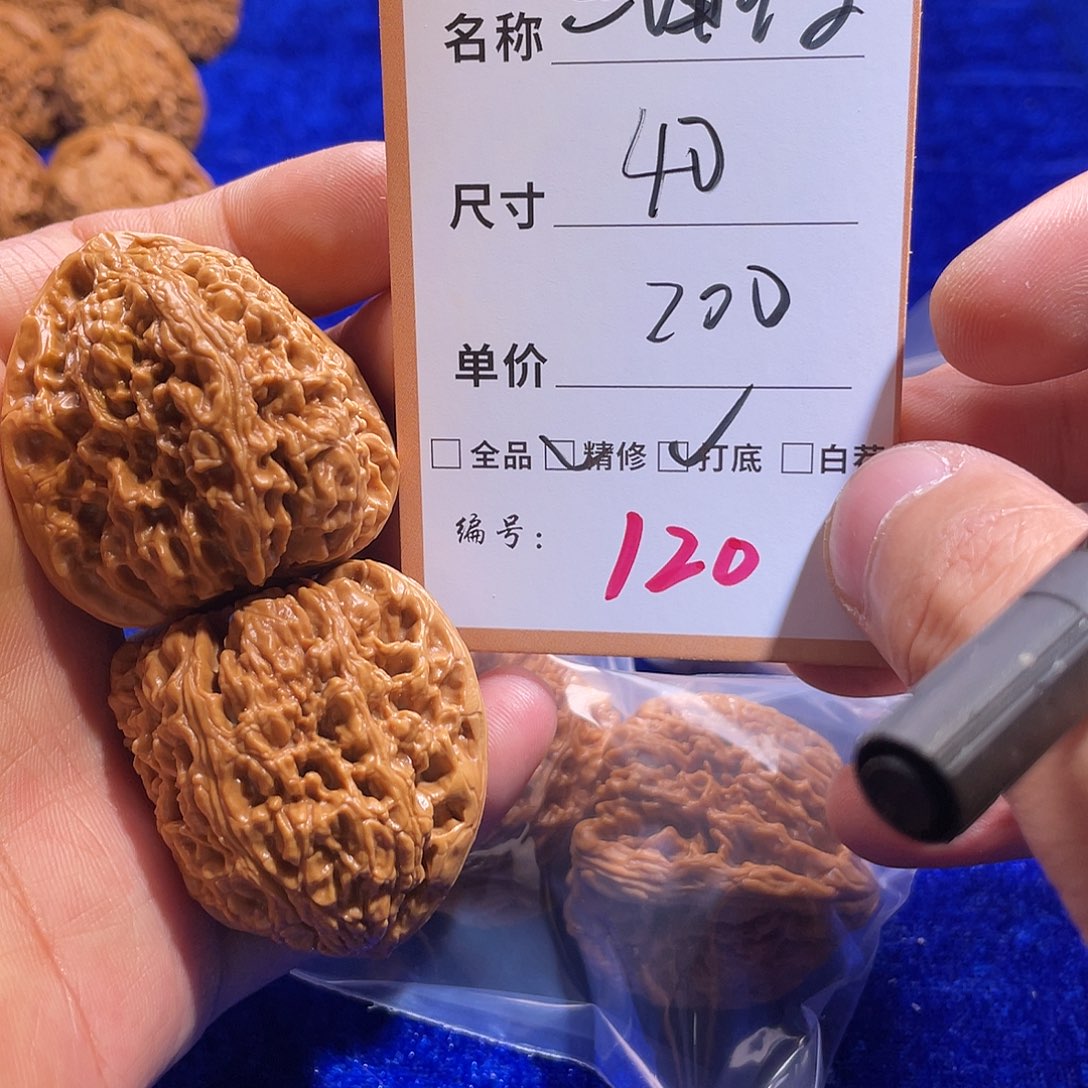 名称
尺寸 40
单价 200
☐ 全品 ☑ 精修 ☑ 打底 ☐ 白茬
编号: 120